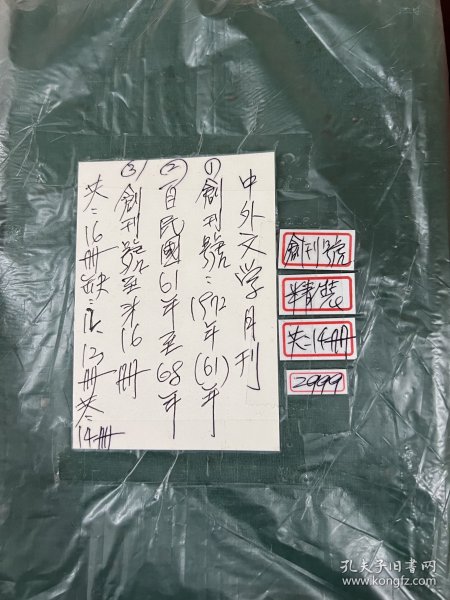 中外文学月刊
①創刊號：1972年(61)年
②自民國61年至68年
③創刊號至才16冊
共：16冊缺：12、13冊共：14冊
創刊號
精裝
共：14冊
2999
孔夫子旧书网
www.kongfz.com